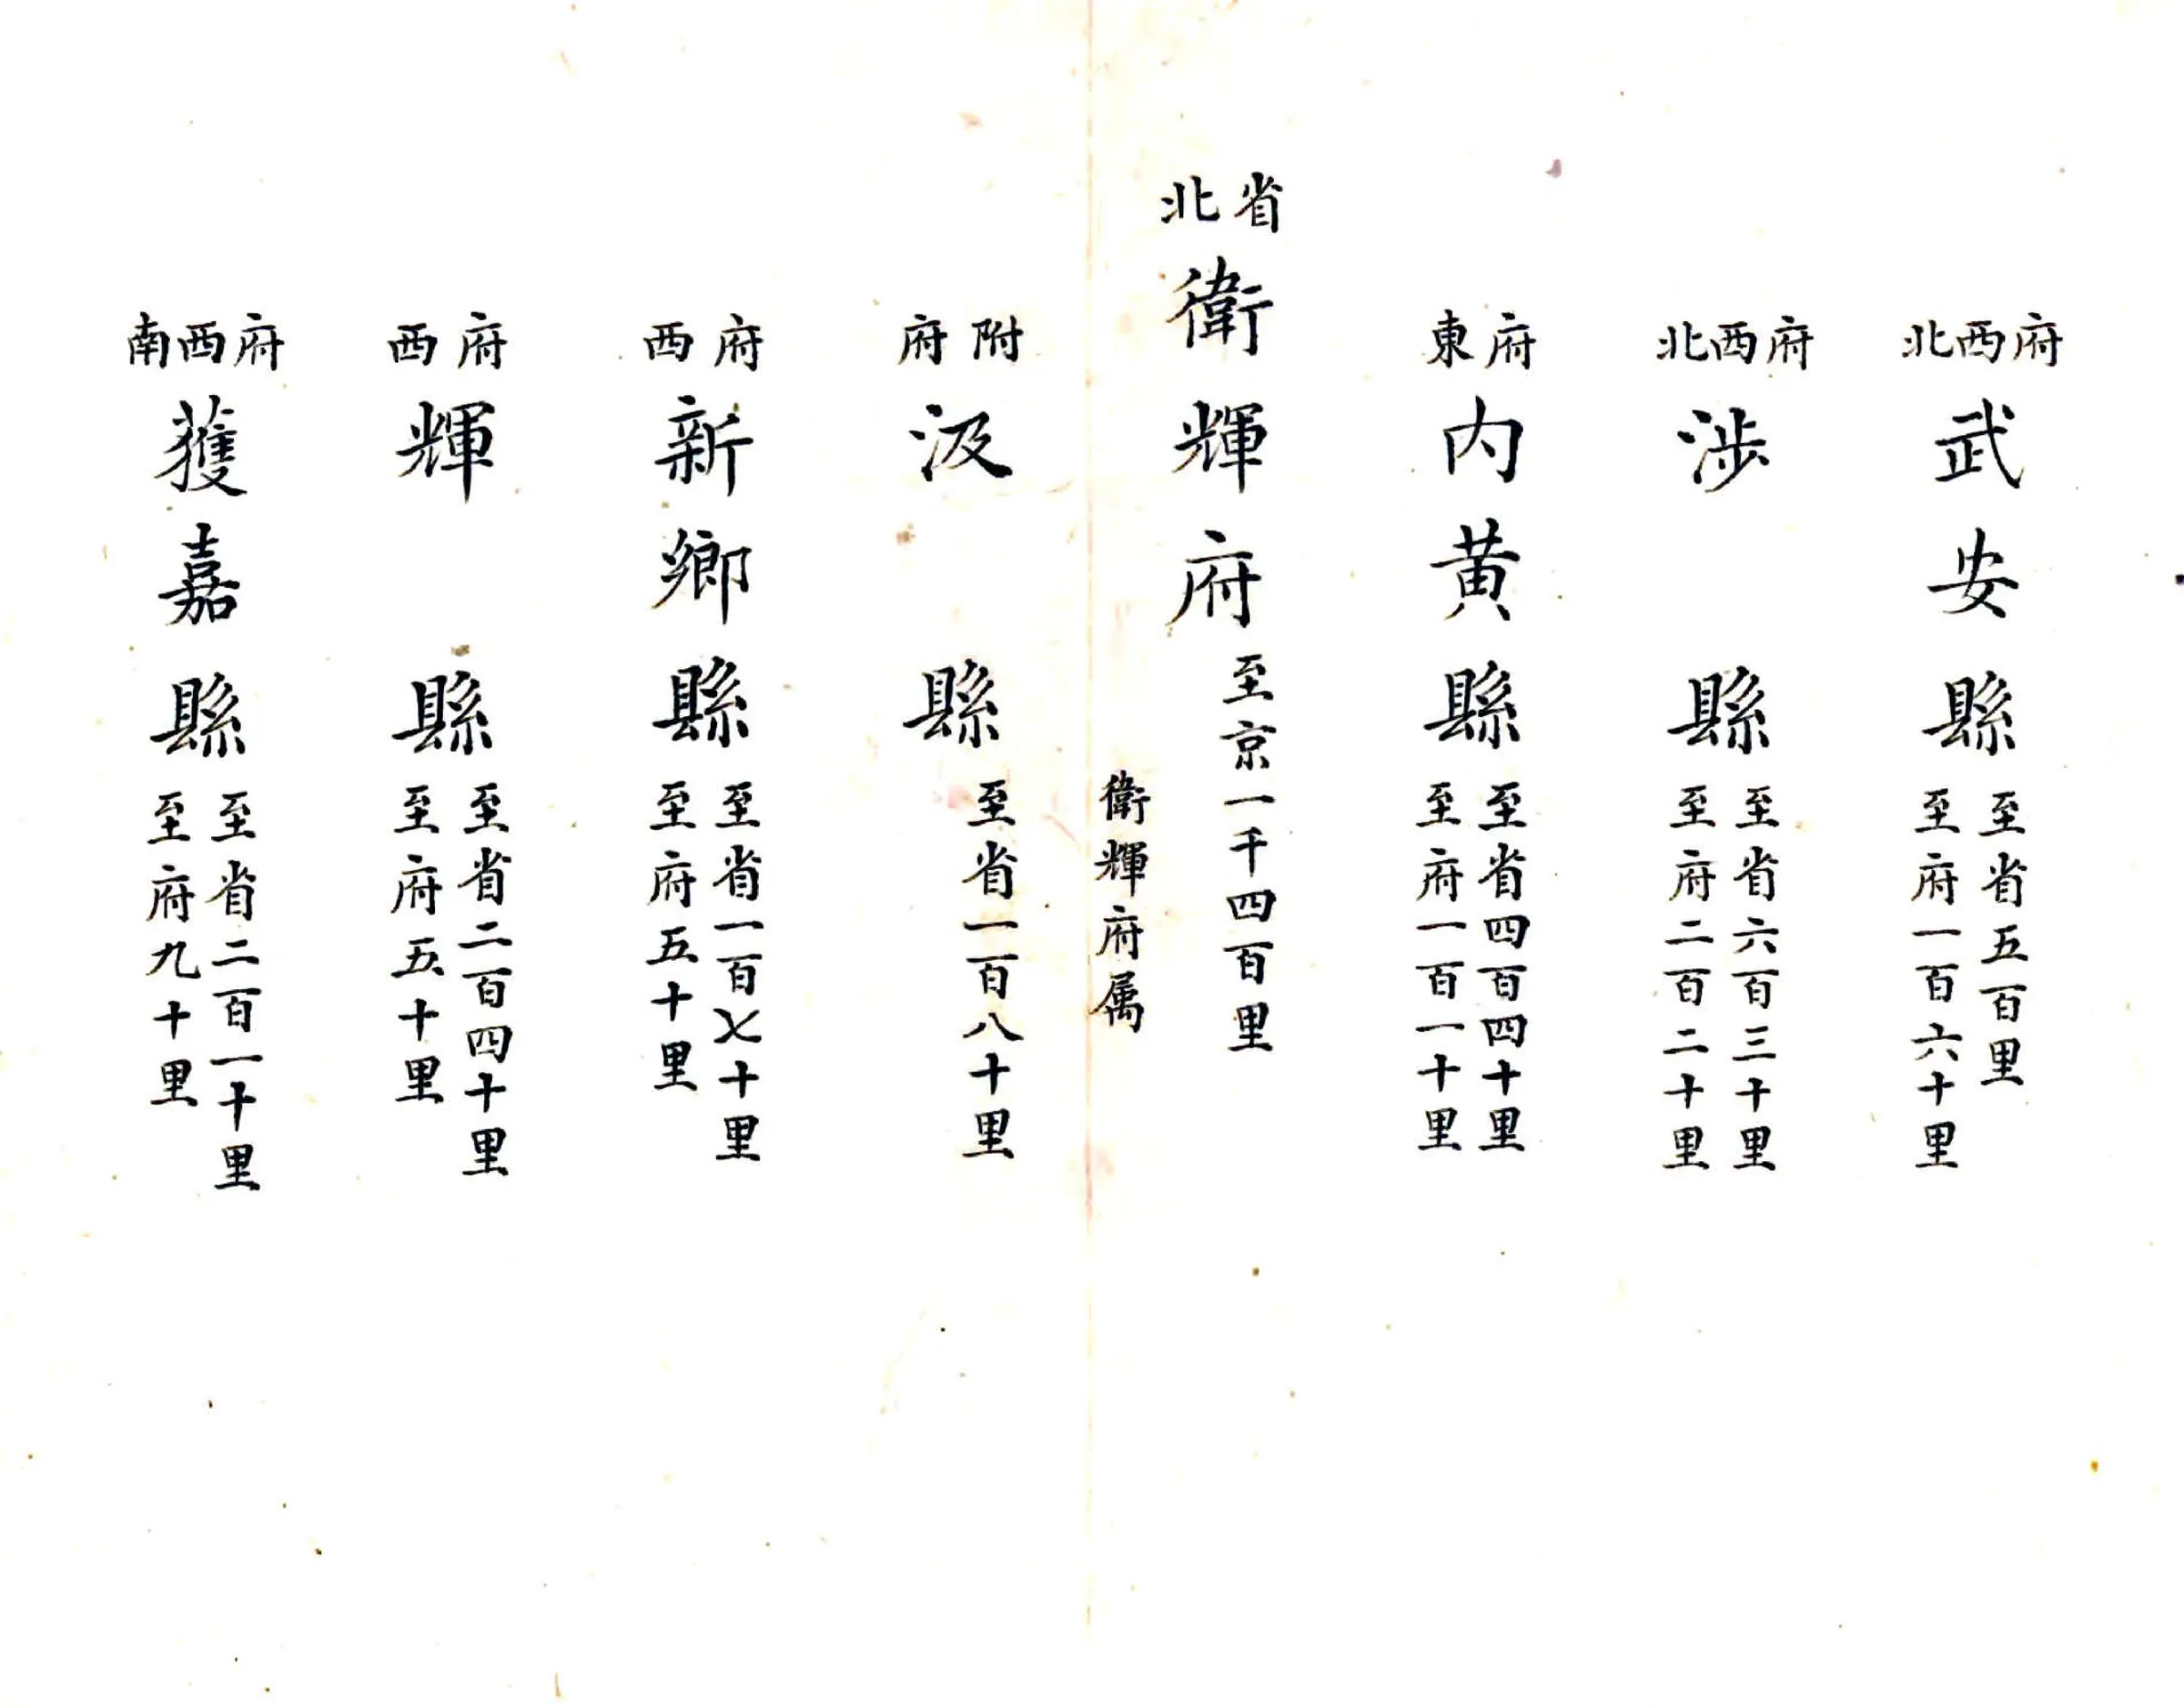 府西北
武安縣
至省五百里
至府一百六十里
府西北
涉縣
至省六百三十里
至府二百二十里
府東
內黃縣
至省四百四十里
至府一百一十里
省北
衛輝府
至京一千四百里
衛輝府属
附府
汲縣
至省一百八十里
府西
新鄉縣
至省一百七十里
至府五十里
府西
輝縣
至省二百四十里
至府五十里
府西南
獲嘉縣
至省二百一十里
至府九十里